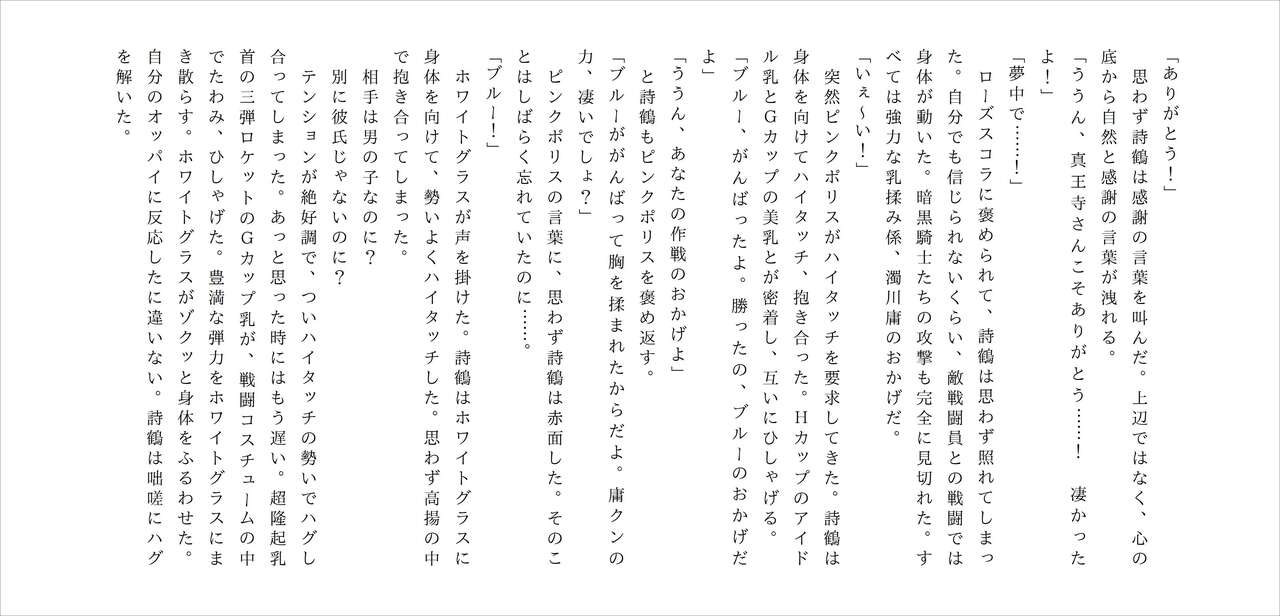 「ありがとう！」
　思わず詩鶴は感謝の言葉を叫んだ。上辺ではなく、心の
底から自然と感謝の言葉が洩れる。
「ううん、真王寺さんこそありがとう……！　凄かった
よ！」
「夢中で……！」
　ローズスコラに褒められて、詩鶴は思わず照れてしまっ
た。自分でも信じられないくらい、敵戦闘員との戦闘では
身体が動いた。暗黒騎士たちの攻撃も完全に見切れた。す
べては強力な乳揉み係、濁川庸のおかげだ。
「いぇ～い！」
　突然ピンクポリスがハイタッチを要求してきた。詩鶴は
身体を向けてハイタッチ、抱き合った。Ｈカップのアイド
ル乳とＧカップの美乳とが密着し、互いにひしゃげる。
「ブルー、がんばったよ。勝ったの、ブルーのおかげだ
よ」
「ううん、あなたの作戦のおかげよ」
　と詩鶴もピンクポリスを褒め返す。
「ブルーががんばって胸を揉まれたからだよ。庸クンの
力、凄いでしょ？」
　ピンクポリスの言葉に、思わず詩鶴は赤面した。そのこ
とはしばらく忘れていたのに……。
「ブルー！」
　ホワイトグラスが声を掛けた。詩鶴はホワイトグラスに
身体を向けて、勢いよくハイタッチした。思わず高揚の中
で抱き合ってしまった。
　相手は男の子なのに？
　別に彼氏じゃないのに？
　テンションが絶好調で、ついハイタッチの勢いでハグし
合ってしまった。あっと思った時にはもう遅い。超隆起乳
首の三弾ロケットのＧカップ乳が、戦闘コスチュームの中
でたわみ、ひしゃげた。豊満な弾力をホワイトグラスにま
き散らす。ホワイトグラスがゾクッと身体をふるわせた。
自分のオッパイに反応したに違いない。詩鶴は咄嗟にハグ
を解いた。